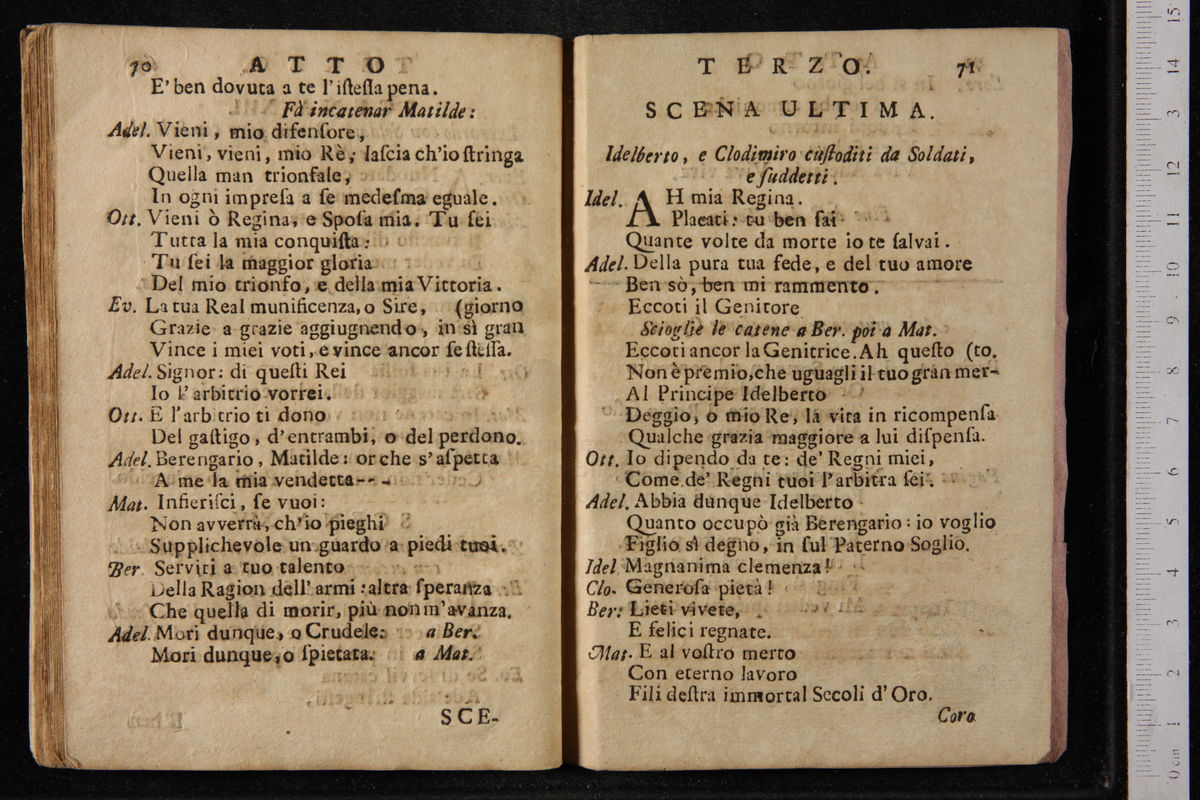 70 ATTO
E' ben dovuta a te l'iſteſſa pena.
Fà incatenar Matilde:
Adel. Vieni, mio difenſore,
Vieni, vieni, mio Rè, laſcia ch'io ſtringa
Quella man trionfale,
In ogni impreſa a ſe medeſma eguale.
Ott. Vieni ò Regina, e Spoſa mia. Tu ſei
Tutta la mia conquiſta:
Tu ſei la maggior gloria
Del mio trionfo, e della mia Vittoria.
Ev. La tua Real munificenza, o Sire, (giorno
Grazie a grazie aggiugnendo, in sì gran
Vince i miei voti, e vince ancor ſe ſteſſa.
Adel. Signor: di queſti Rei
Io l'arbitrio vorrei.
Ott. E l'arbitrio ti dono
Del gaſtigo, d'entrambi, o del perdono.
Adel. Berengario, Matilde: or che s'aſpetta
A me la mia vendetta---
Mat. Infieriſci, ſe vuoi:
Non avverrà, ch'io pieghi
Supplichevole un guardo a piedi tuoi.
Ber. Serviti a tuo talento
Della Ragion dell'armi: altra ſperanza
Che quella di morir, più non m'avanza.
Adel. Mori dunque, o Crudele: a Ber.
Mori dunque, o ſpietata. a Mat.
SCE-
TERZO. 71
SCENA ULTIMA.
Idelberto, e Clodimiro cuſtoditi da Soldati,
e ſuddetti.
Idel. AH mia Regina.
Placati: tu ben ſai
Quante volte da morte io te ſalvai.
Adel. Della pura tua fede, e del tuo amore
Ben sò, ben mi rammento.
Eccoti il Genitore
Scioglie le catene a Ber. poi a Mat.
Eccoti ancor la Genitrice. Ah queſto (to.
Non è premio, che uguagli il tuo gran mer-
Al Principe Idelberto
Deggio, o mio Re, la vita in ricompenſa
Qualche grazia maggiore a lui diſpenſa.
Ott. Io dipendo da te: de' Regni miei,
Come de' Regni tuoi l'arbitra ſei.
Adel. Abbia dunque Idelberto
Quanto occupò già Berengario: io voglio
Figlio sì degno, in ſul Paterno Soglio.
Idel Magnanima clemenza!
Clo. Generoſa pietà!
Ber: Lieti vivete,
E felici regnate.
Mat. E al voſtro merto
Con eterno lavoro
Fili deſtra immortal Secoli d'Oro.
Coro